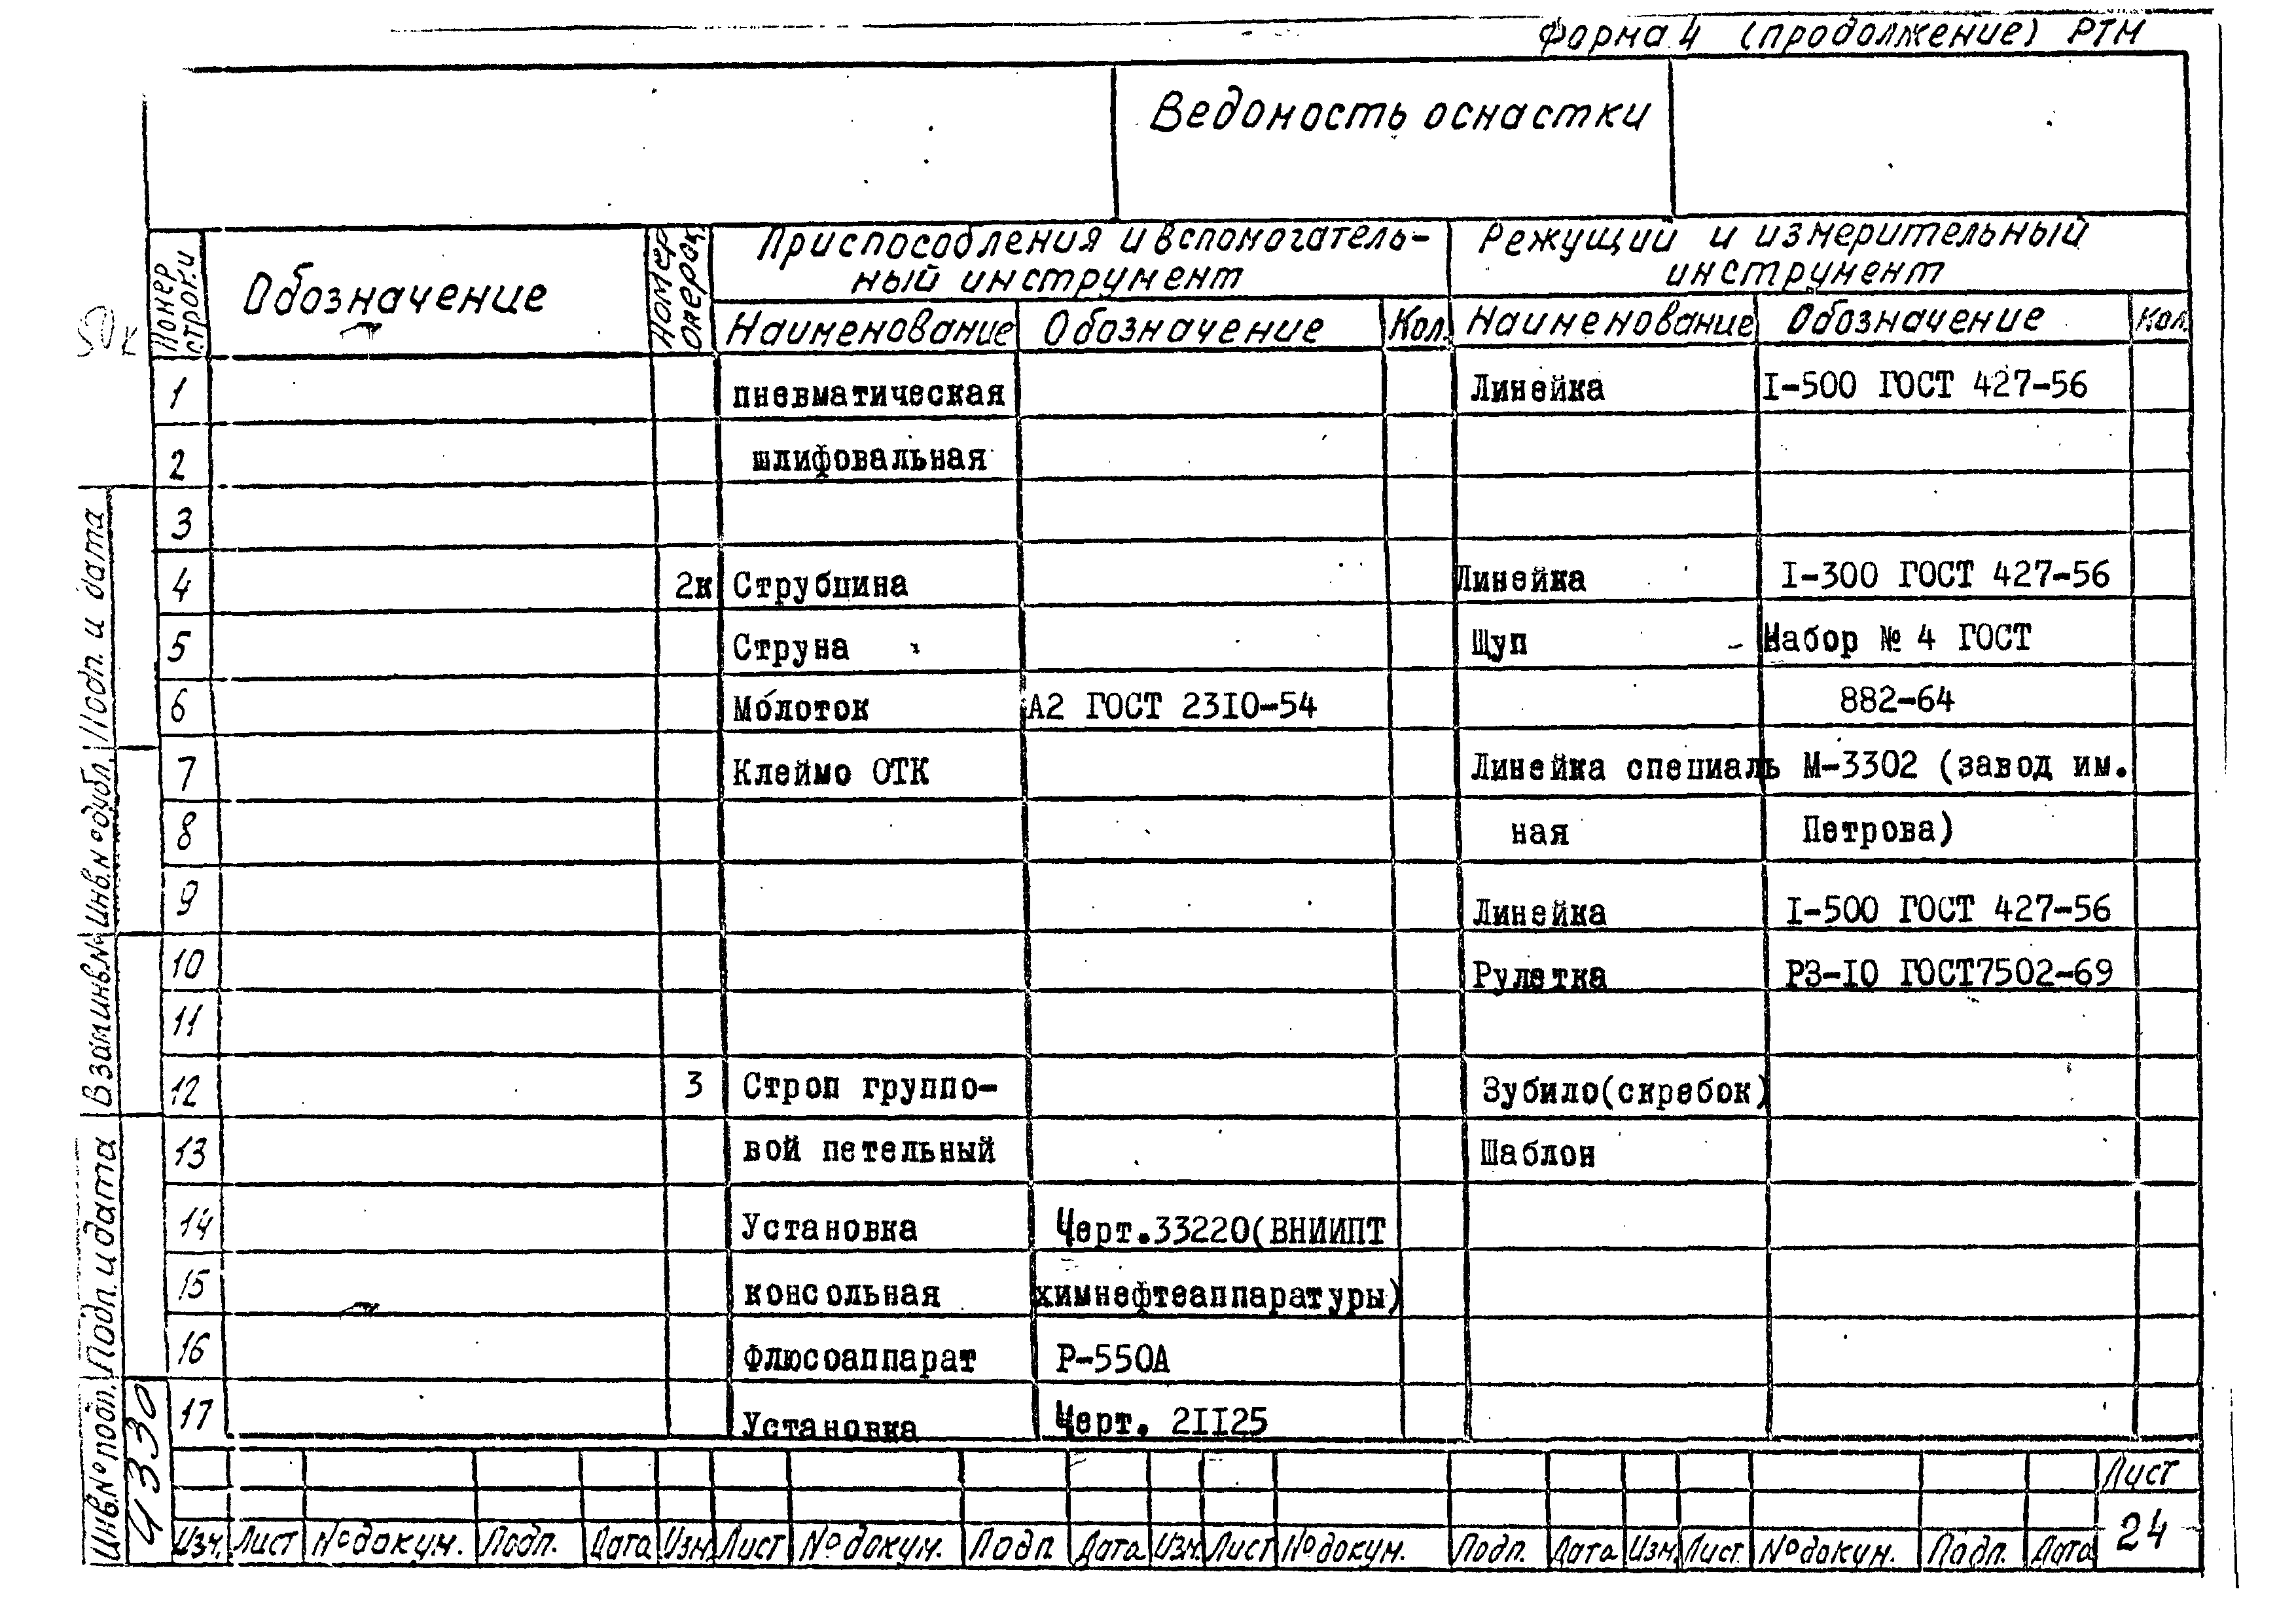 Форма 4 (продолжение) РТМ
Ведомость оснастки
Номер строки
Обозначение
Номер операц.
Приспособления и вспомогатель-
ный инструмент
Режущий и измерительный
инструмент
Наименование Обозначение Кол. Наименование Обозначение Кол.
1 пневматическая Линейка I-500 ГОСТ 427-56
2 шлифовальная
3
4 2к Струбцина Линейка I-300 ГОСТ 427-56
5 Струна Щуп Набор № 4 ГОСТ
6 Молоток А2 ГОСТ 2310-54 882-64
7 Клеймо ОТК Линейка специаль М-3302 (завод им.
8 ная Петрова)
9 Линейка I-500 ГОСТ 427-56
10 Рулетка РЗ-10 ГОСТ7502-69
11
12 3 Строп группо- Зубило(скребок)
13 вой петельный Шаблон
14 Установка Черт.33220(ВНИИПТ
15 консольная химнефтеаппаратуры)
16 Флюсоаппарат Р-550А
17 Установка Черт. 21125
Изм. Лист № докум. Подп. Дата Изм. Лист № докум. Подп. Дата Изм. Лист № докум. Подп. Дата Изм. Лист № докум. Подп. Дата
Лист
24
Инв.№ подл. Подп. и дата Взам.инв.№ Инв.№ дубл. Подп. и дата
4330